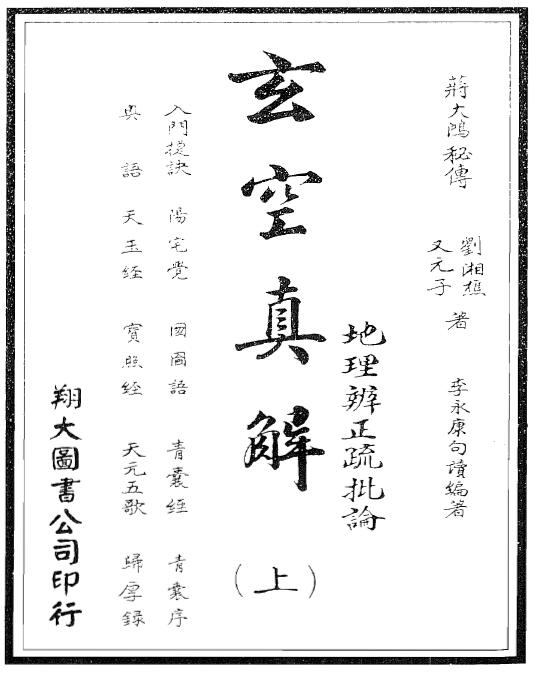 蔣大鴻秘傳
劉湘樵
又元子
著
李永康句讀編著
地理辨正疏批論
玄空真解
(上)
入門捷訣 陽宅覺 國圖語 青囊經 青囊序
奧語 天玉經 寶照經 天元五歌 歸厚錄
翔大圖書公司印行